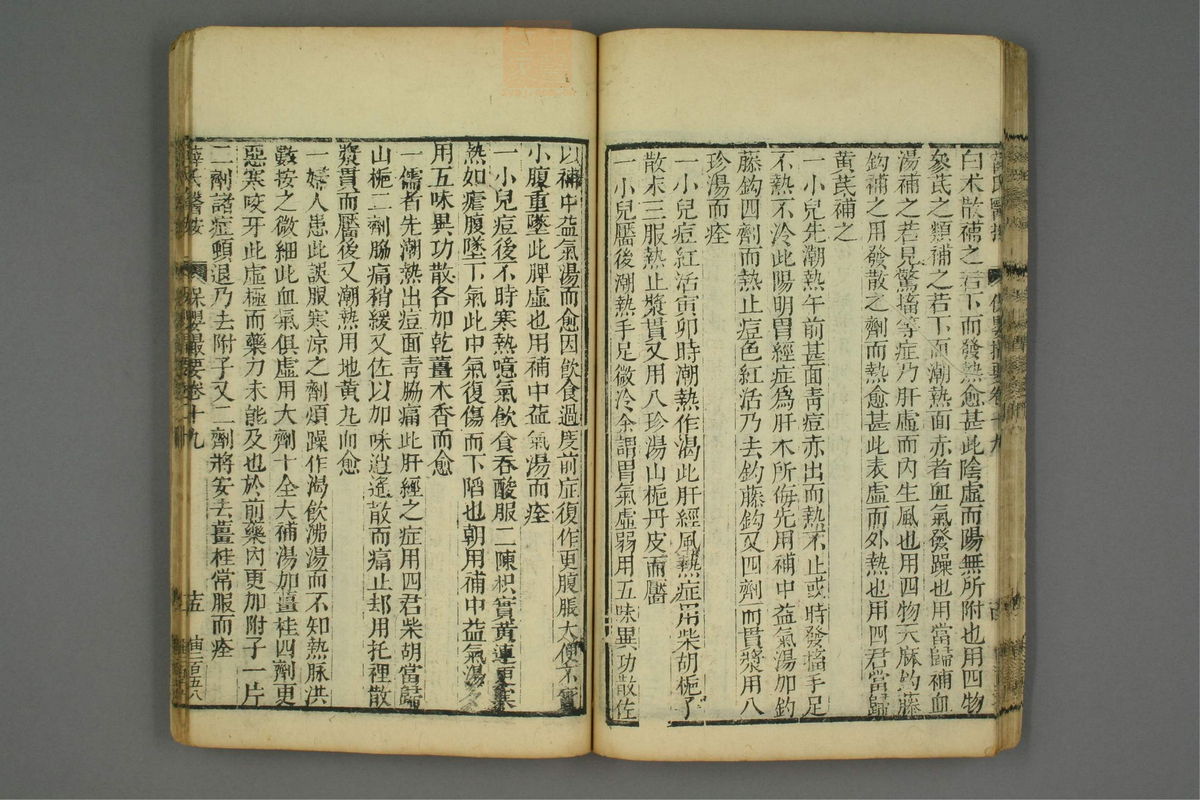 白术散補之若下而發熱愈甚此陰虛而陽無所附也用四物
參芪之類補之若下而潮熱面赤者血氣發躁也用當歸補血
湯補之若見驚搐等症乃肝虛而內生風也用四物天麻鈎藤
鈎補之用發散之劑而熱愈甚此表虛而外熱也用四君當歸
黃芪補之
一小兒先潮熱午前甚面靑痘赤出而熱不止或時發搐手足
不熱不冷此陽明胃經症爲肝木所侮先用補中益氣湯加鈎
藤鈎四劑而熱止痘色紅活乃去鈎藤鈎又四劑而貫漿用八
珍湯而痊
一小兒痘紅活寅卯時潮熱作渴此肝經風熱症用柴胡梔子
散末三服熱止漿貫又用八珍湯山梔丹皮而靨
一小兒靨後潮熱手足微冷余謂胃氣虛弱用五味異功散佐
以補中益氣湯而愈因飮食過度前症復作更腹脹大便不實
小腹重墜此脾虛也用補中益氣湯而痊
一小兒痘後不時寒熱噫氣飮食吞酸服二陳枳實黃連更寒
熱如瘧腹墜下氣此中氣復傷而下陷也朝用補中益氣湯夕
用五味異功散各加乾薑木香而愈
一儒者先潮熱出痘面靑脇痛此肝經之症用四君柴胡當歸
山梔二劑脇痛稍緩又佐以加味逍遙散而痛止却用托裡散
漿貫而靨後又潮熱用地黃丸而愈
一婦人患此誤服寒涼之劑煩躁作渴飮沸湯而不知熱脉洪
數按之微細此血氣俱虛用大劑十全大補湯加薑桂四劑更
惡寒咬牙此虛極而藥力未能及也於前藥內更加附子一片
二劑諸症頓退乃去附子又二劑將安去薑桂常服而痊
薛氏醫按 保嬰撮要卷十九 十五